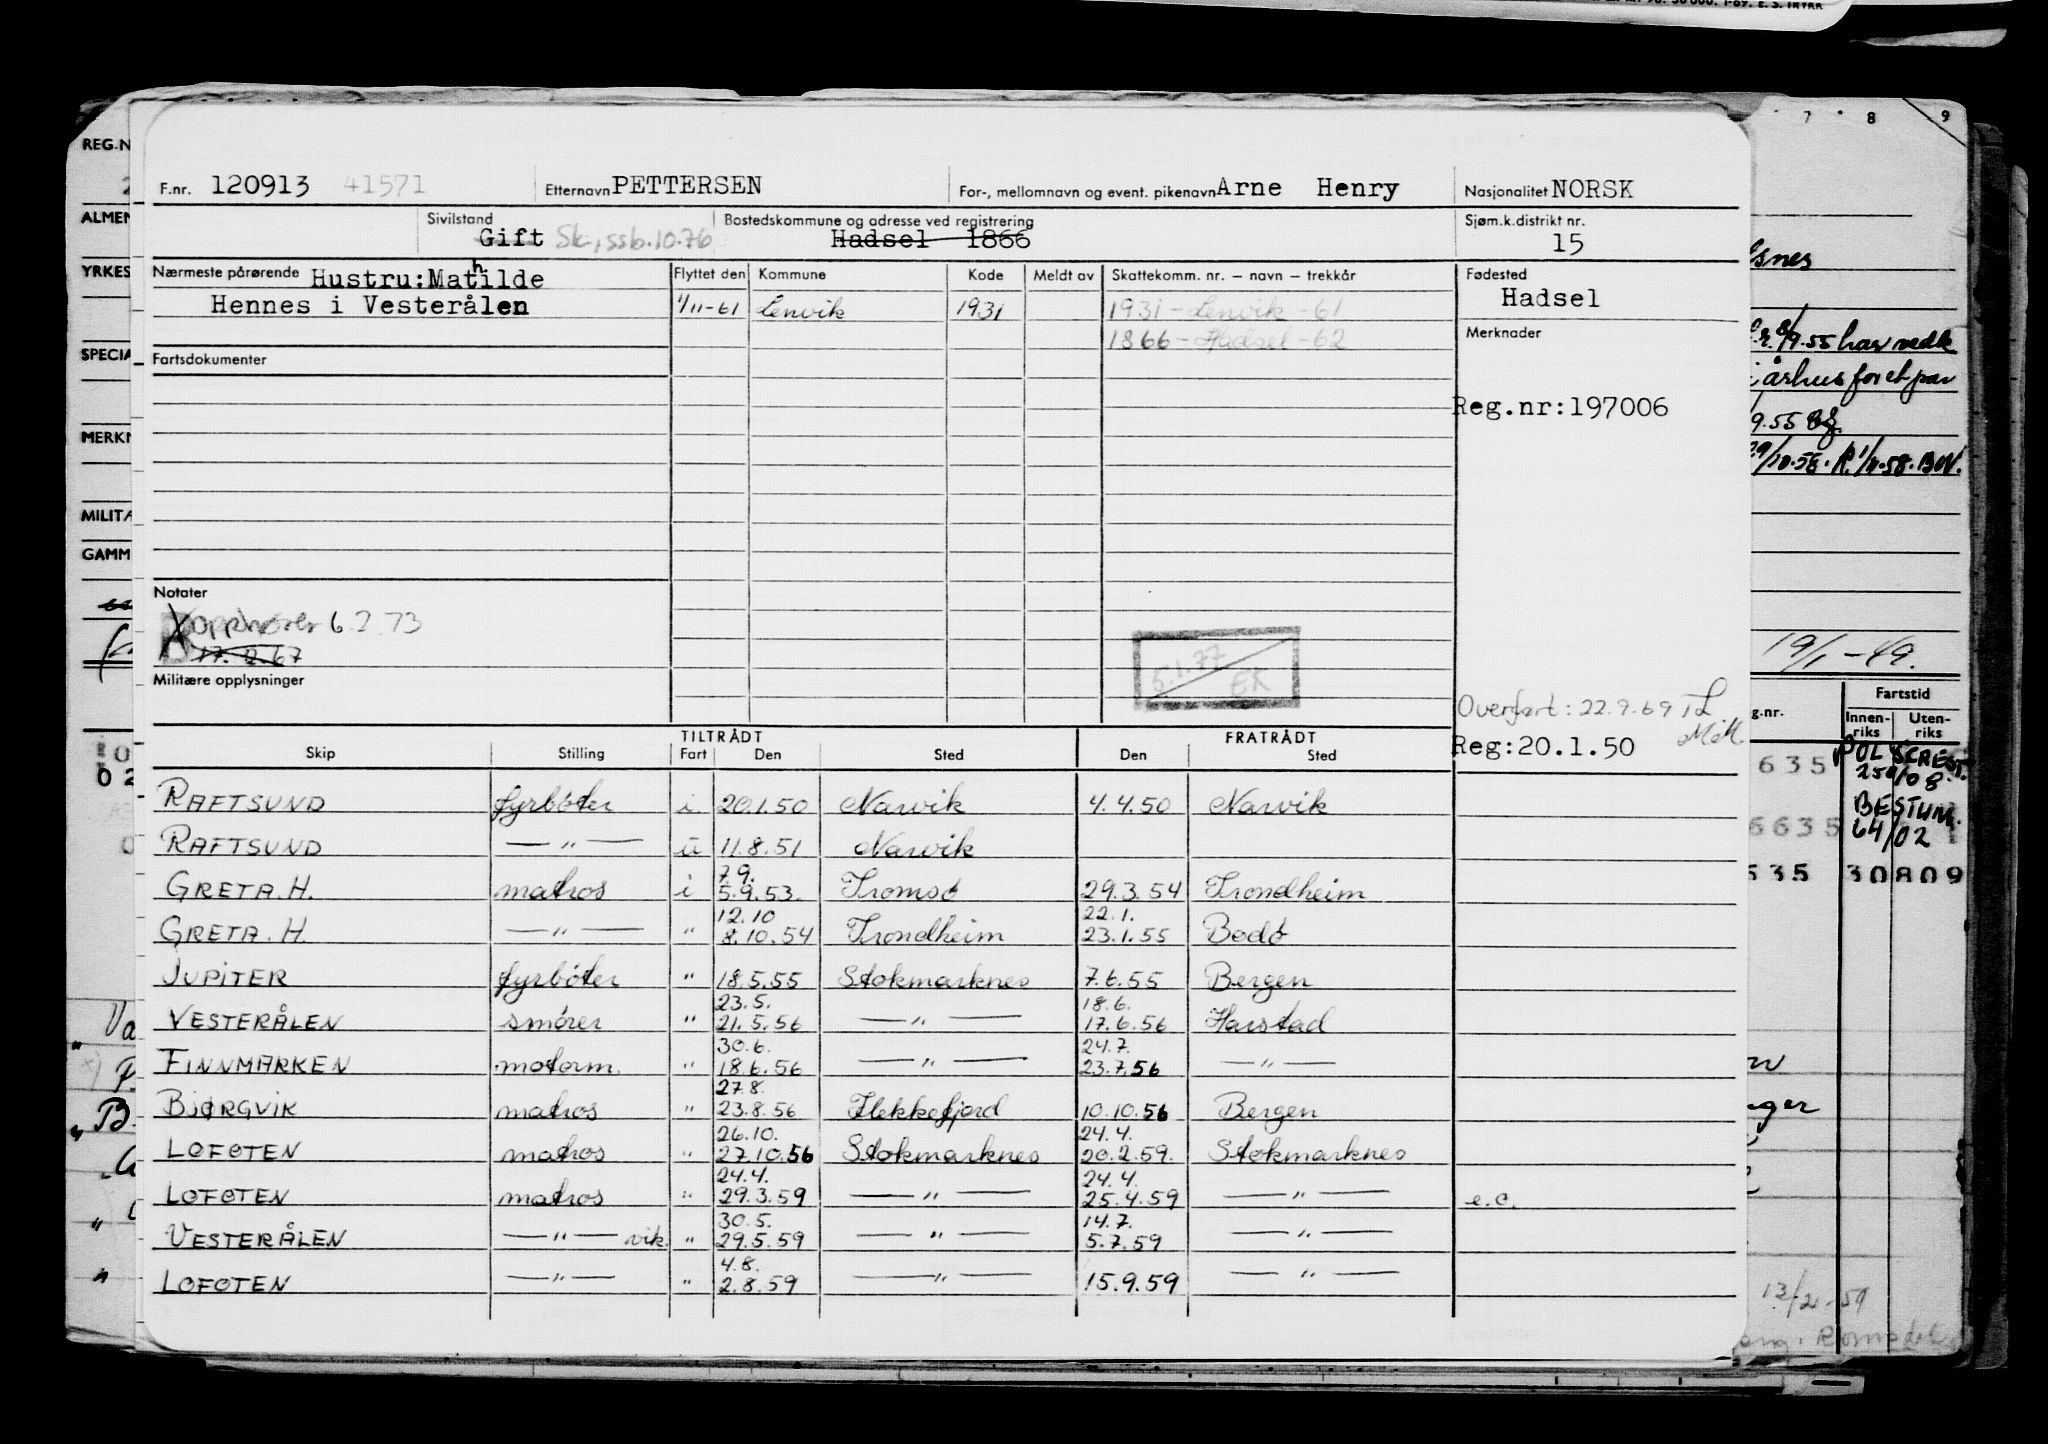 F.nr. 120913 41571 Etternavn PETTERSEN For-, mellomnavn og event. pikenavn Arne Henry Nasjonalitet NORSK
Sivilstand Bostedskommune og adresse ved registrering Sjøm.k.distrikt nr.
Gift Sk, ssb.10.76 Hadsel 1866 15
Nærmeste pårørende Hustru:Mathilde Flyttet den Kommune Kode Meldt av Skattekomm. nr. — navn — trekkår Fødested
Hennes i Vesterålen 1/11-61 Lenvik 1931 1931 - Lenvik - 61 Hadsel
1866 - Hadsel - 62 Merknader
Fartsdokumenter
Reg.nr:197006
Notater
opphører 6.2.73
17. 2.67
5.1.77
EK
Militære opplysninger
Overført: 22.9.69 TL
Reg:20.1.50
TILTRÅDT FRATRÅDT
Skip Stilling Fart Den Sted Den Sted
RAFTSUND fyrbøter i. 20.1.50 Narvik 4.4.50 Narvik
RAFTSUND — " — u 11.8.51 Narvik
7.9.
GRETA.H. matros i 5.9.53. Tromsø 29.3.54 Trondheim
12.10 22.1.
GRETA.H. — " — " 8.10.54 Trondheim 23.1.55 Bodø
JUPITER fyrbøter " 18.5.55 Stokmarknes 7.6.55 Bergen
23.5. 18.6.
VESTERÅLEN smører " 21.5.56 — " — 17.6.56 Harstad
30.6. 24.7.
FINNMARKEN motorm. " 18.6.56 — " — 23.7.56 — " —
27.8.
BJØRGVIK matros " 23.8.56 Flekkefjord 10.10.56 Bergen
26.10. 24.4.
LOFOTEN matros " 27.10.56 Stokmarknes 20.2.59. Stokmarknes
24.4. 24.4.
LOFOTEN matros " 29.3.59 — " — 25.4.59 — " — e.o.
30.5. 14.7.
VESTERÅLEN — " — vik. " 29.5.59 — " — 5.7.59 — " —
4.8.
LOFOTEN — " — " 2.8.59 — " — 15.9.59 — " —
REG.N
ALMEN
YRKES
SPECIA
MERKN
MILITÆ
GAMM
7 8 9
snes
9.55 har vedk
i århus for et par
9.55
29/10.58. R. 1/11.58. BW.
19/1-49.
g.nr. Fartstid
Innenriks Utenriks
635 POL SCREST.
250/08.
BESTUM.
6635 64/02
535 30809
13/2-59